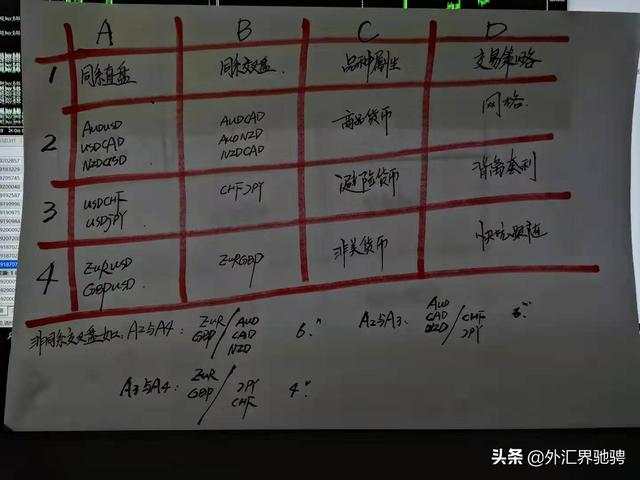 A B C D
1 同系直盘 同系交叉盘. 品种属性 交易策略
2 AUDUSD AUDCAD 商品货币 网格
USDCAD AUDNZD
NZDUSD NZDCAD
3 USDCHF CHFJPY 避险货币 背离套利
USDJPY
4 EURUSD EURGBP 非美货币
GBPUSD
非同系交叉盘如: A2与A4: EUR GBP / AUD CAD NZD 6. A2与A3. AUD CAD NZD / CHF JPY 6.
A3与A4: EUR GBP / JPY CHF 4.
头条 @外汇界驰骋